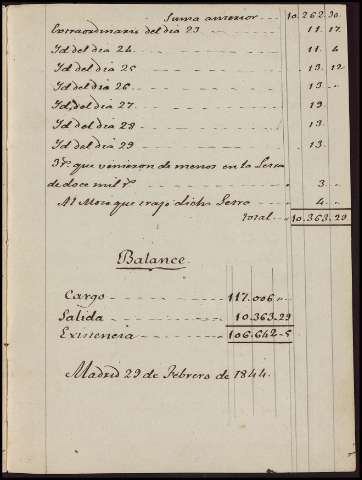 Suma anterior 10.262.30
Extraordinario del dia 23 11.17
Id del dia 24 11.4
Id del dia 25 13.12
Id del dia 26 13.
Id del dia 27 19
Id del dia 28 13.
Id del dia 29 13.
3 rs que vinieron de menos en la
de doce mil rs 3.
Al Mozo que trajo dicha 4.
Total 10.363.29
Balance
Cargo 117.006
Salida 10.363.29
Existencia 106.642-5
Madrid 29 de Febrero de 1844.